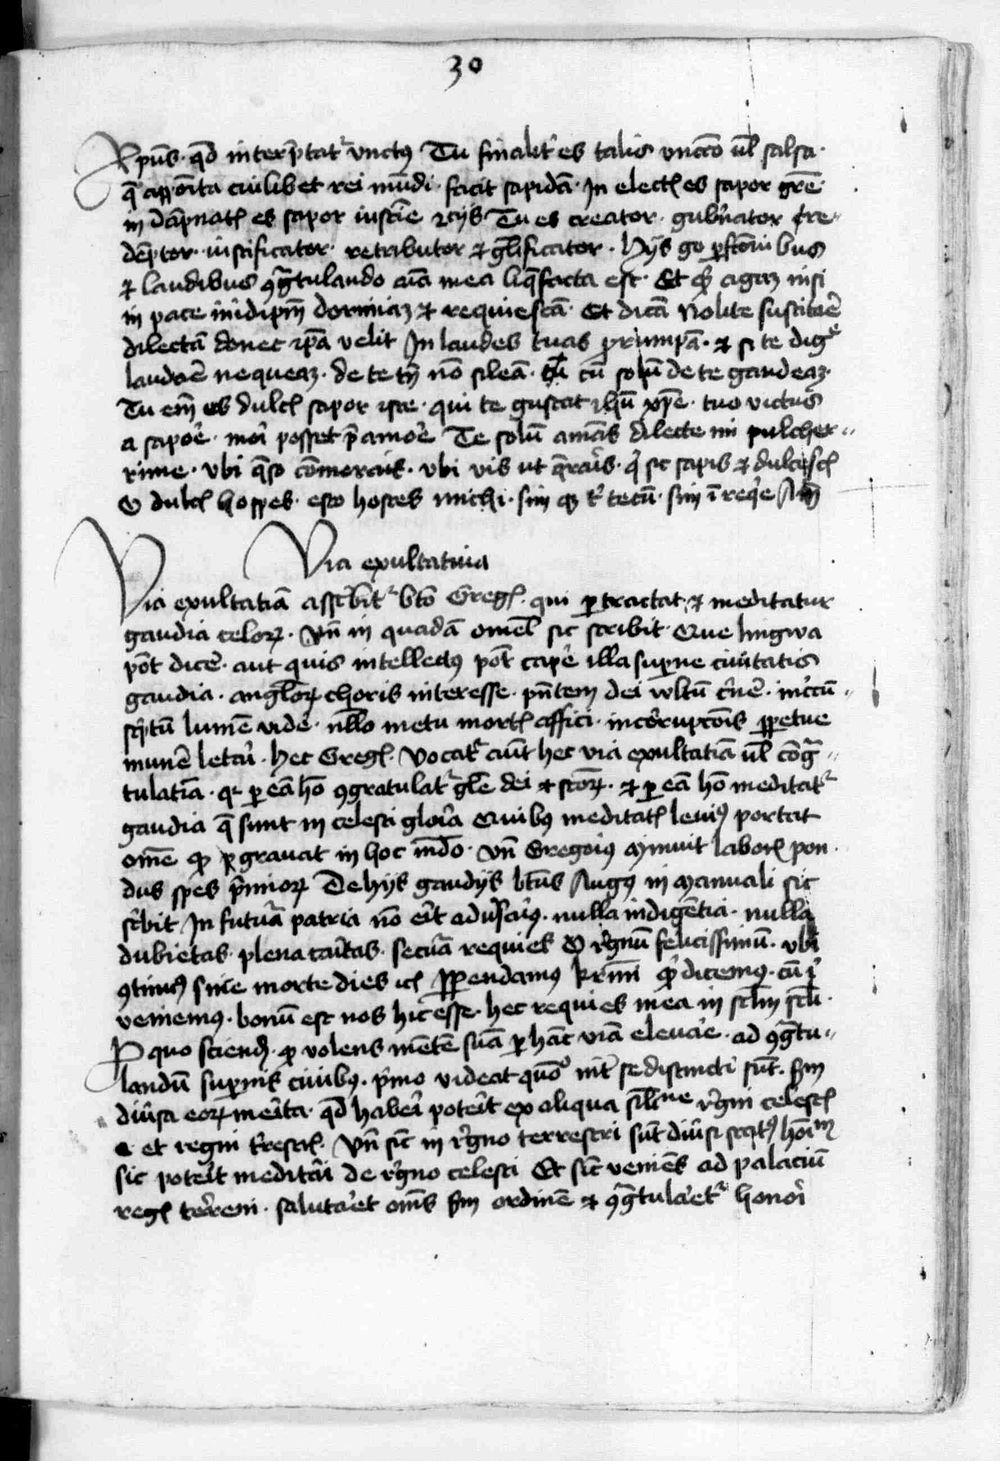 30
Xpūs · qd̄ interp̄tat᷑ vnctus Tu finalit̄ es talis vnctio ul̄ salsa ·
q̄ app̄oīta cuilibet rei mūdi · facit sapidā · In elect̄ es sapor grē
in dāpnat̄ es sapor iusticīe Tu es creator · gub̄nator · re-
dēptor · iustificator · retributor ⁊ gl̄ificator · Hijs
⁊ laudibus ꝯḡtulando aīa mea liq̄facta est · Et qͥ agaꝫ nisi
in pace in idip̄m dormiaꝫ ⁊ requiescā · Et dicā Nolite suscitar̄e
dilectā donec ip̄a velit In laudes tuas prūmpā · ⁊ si te digͤ
laudar̄e nequeaꝫ · de te tn̄ nō sileā · cū solū de te gaudeaꝫ
Tu em̄ es dulc̄ sapor iste · qui te gustat ihū xp̄e · tuo victus
a sapor̄e · mori posset p̄ amor̄e Te solū amās dilecte mi pulcher-
rime · vbi q̄so cōmoraris · vbi vis ut q̄raris · qͥ sic sapis ⁊ dulcesc̄
O dulc̄ hospes · esto hospes michi · sim tecū · sim ī req̄e Am̄
Via exultatiua
Via exultatiā asscͥbit᷑ bt̄o Greḡ · qui ꝑtractat ⁊ meditatur
gaudia celoꝝ · Vn̄ in quadā omel̄ sic scribit · Que lingwa
pōt dicēr · aut quis intellectus pōt caper̄e illa sup̄ne ciuitatis
gaudia · angl̄oꝝ choris interesse · p̄ntem dei vultū cern̄e · incͥcū-
scͥptū lumē vider̄e · nl̄lo metu mort̄ affici · incorrupciōis ꝑpetue
munē letari · hec Greḡ · Vocat᷑ aūt hec via exultatiā ul̄ cōg̃-
tulatiā · qꝛ ꝑ eā hō ꝯgratulat᷑ gl̄ie dei ⁊ scōꝝ · ⁊ ꝑ eā hō meditat᷑
gaudia q̄ sunt in celesti gloria Quibus meditat̄ leuius portat
omē qͦ p̄grauat in hoc mūdo · Vn̄ Gregorius Minuit labor̄ pon-
dus spes p̄mioꝝ De hijs gaudijs bt̄us Augꝰ in Manuali sic
scͥbit In futura patria nō erit adu̓sarius · nulla indigentia · nulla
dubietas · plena caritas · secura requies O regnū felicissimū · vbi
ꝯtinuus sine morte dies Ap̄p̄hendamus qͦ dicemus · cū
veniemus · bonū est nos hic esse · hec requies mea in sc̄lm̄ sc̄li ·
Pro quo sciend̄ · qͦ volens mētē suā ꝑ hāc viā eleuare · ad ꝯḡtu-
landū sup̄nis ciuibus · p̄mo videat quō int̄ se distincti sūt · sm̄
diu̓sa eoꝝ merita · qd̄ haberi poterit ex aliqua sil̄itudine regni celest̄
et regni t̓restr̄ · Vn̄ sic̄ in regno terrestri sūt diu̓si
sic poterit meditari de regno celesti Et sic̄ veniēs ad palaciū
reḡ terreni · salutaret om̄s sm̄ ordinē ⁊ ꝯḡtularet᷑ honori